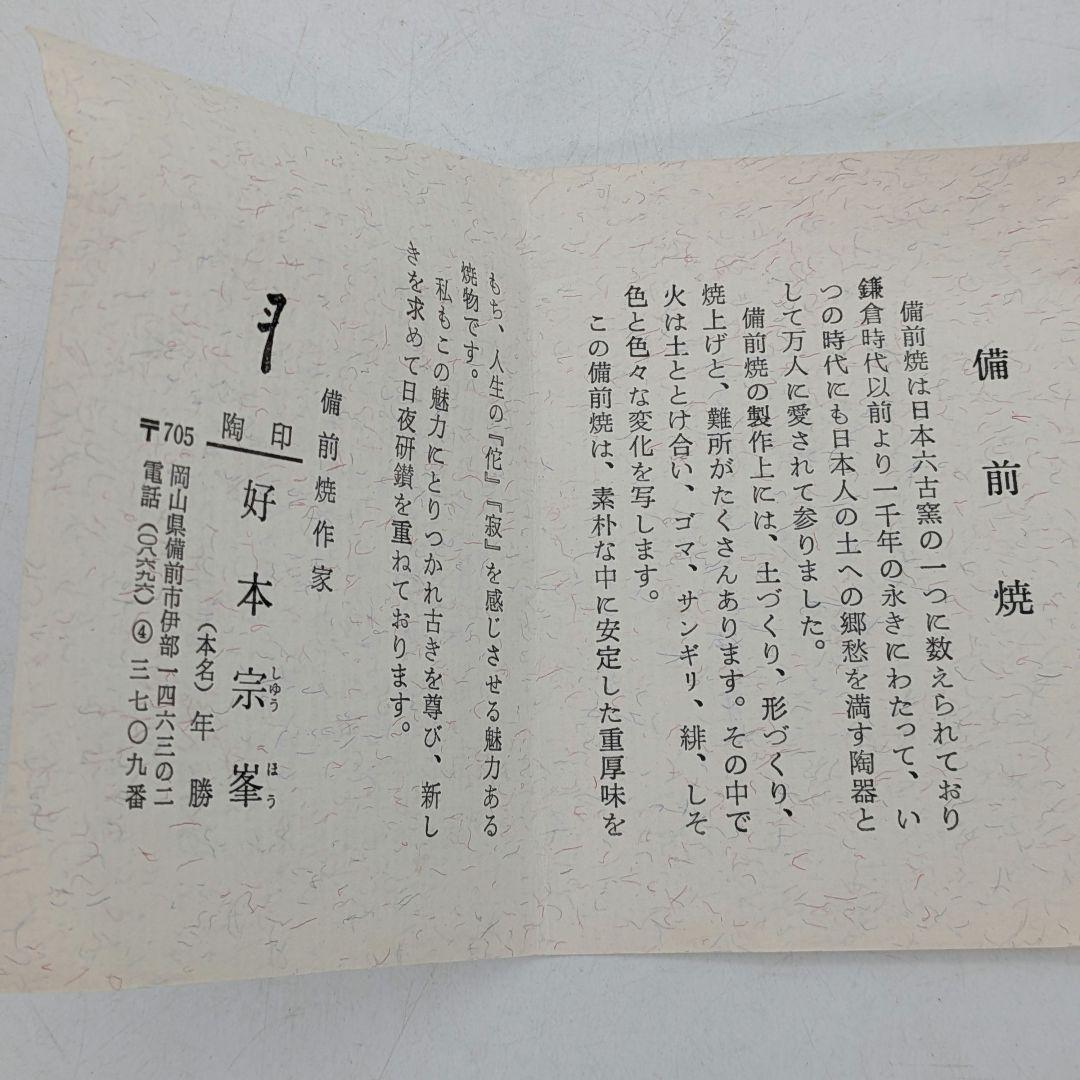 備前焼
備前焼は日本六古窯の一つに数えられており
鎌倉時代以前より一千年の永きにわたって、い
つの時代にも日本人の土への郷愁を満す陶器と
して万人に愛されて参りました。
備前焼の製作上には、土づくり、形づくり、
焼上げと、難所がたくさんあります。その中で
火は土ととけ合い、ゴマ、サンギリ、緋、しそ
色と色々な変化を写します。
この備前焼は、素朴な中に安定した重厚味を
もち、人生の『佗』『寂』を感じさせる魅力ある
焼物です。
私もこの魅力にとりつかれ古きを尊び、新し
きを求めて日夜研鑽を重ねております。
備前焼作家
陶印
好本宗峯
しゆうほう
(本名)年勝
〒705 岡山県備前市伊部一四六三の二
電話(〇八六九六)④三七〇九番